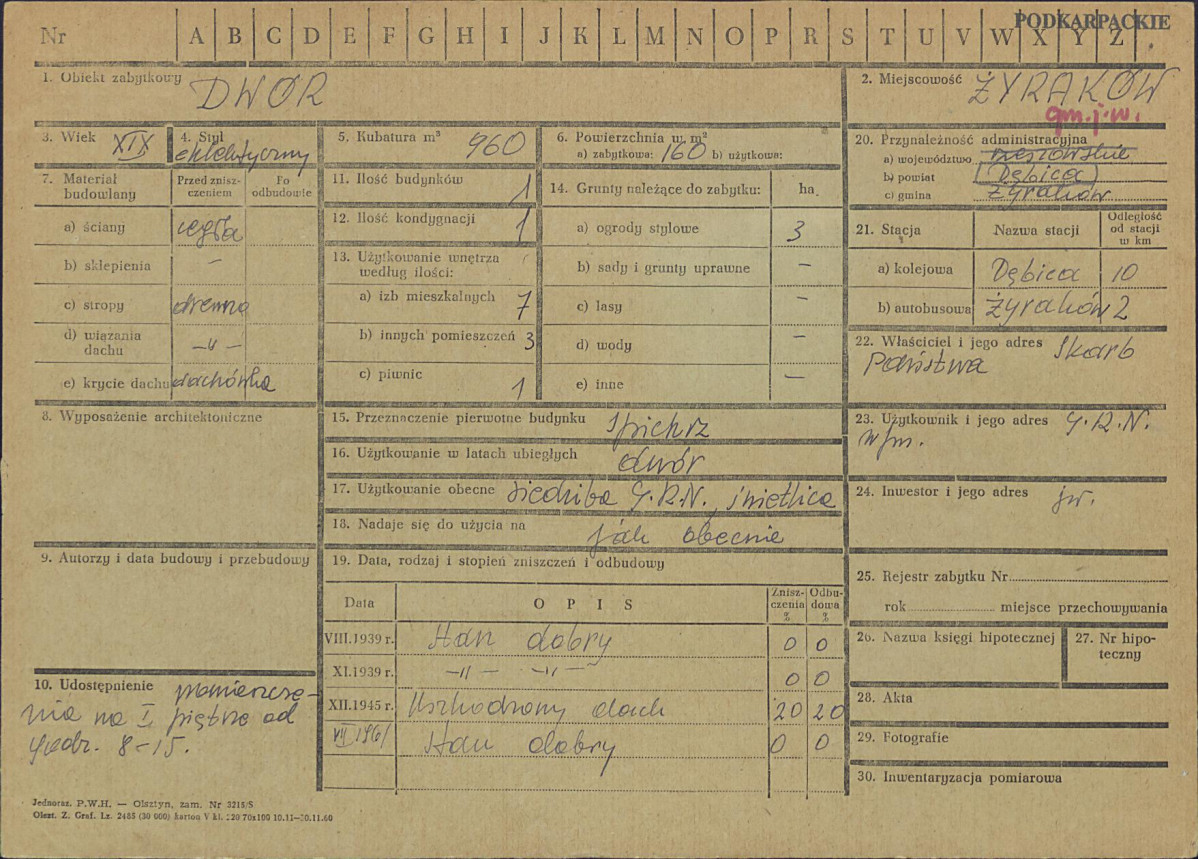 PODKARPACKIE
Nr A B C D E F G H I J K L M N O P R S T U V W X Y Z
1. Obiekt zabytkowy DWÓR
2. Miejscowość ŻYRAKÓW
gm. j.w.
3. Wiek XIX
4. Styl eklektyczny
5. Kubatura m³ 960
6. Powierzchnia w m²
a) zabytkowa: 160 b) użytkowa:
20. Przynależność administracyjna
a) województwo rzeszowskie
b) powiat (Dębica)
c) gmina Żyraków
7. Materiał budowlany
Przed zniszczeniem
Po odbudowie
a) ściany cegła
b) sklepienia –
c) stropy drewno
d) wiązania dachu –„–
e) krycie dachu dachówka
11. Ilość budynków 1
12. Ilość kondygnacji 1
13. Użytkowanie wnętrza
według ilości:
a) izb mieszkalnych 7
b) innych pomieszczeń 3
c) piwnic 1
14. Grunty należące do zabytku: ha
a) ogrody stylowe 3
b) sady i grunty uprawne –
c) lasy –
d) wody –
e) inne –
21. Stacja
Nazwa stacji
Odległość od stacji w km
a) kolejowa Dębica 10
b) autobusowa Żyraków 2
22. Właściciel i jego adres Skarb
Państwa
8. Wyposażenie architektoniczne
15. Przeznaczenie pierwotne budynku spichrz
16. Użytkowanie w latach ubiegłych dwór
17. Użytkowanie obecne siedziba G.R.N., świetlica
18. Nadaje się do użycia na jak obecnie
23. Użytkownik i jego adres G.R.N.
w/m.
24. Inwestor i jego adres jw.
9. Autorzy i data budowy i przebudowy
19. Data, rodzaj i stopień zniszczeń i odbudowy
Data
OPIS
Zniszczenia %
Odbudowa %
VIII.1939 r. Stan dobry 0 0
XI.1939 r. –„– –„– 0 0
XII.1945 r. Uszkodzony dach 20 20
VII 1961 Stan dobry 0 0
25. Rejestr zabytku Nr
rok miejsce przechowywania
26. Nazwa księgi hipotecznej
27. Nr hipoteczny
28. Akta
29. Fotografie
30. Inwentaryzacja pomiarowa
10. Udostępnienie pomieszcze-
nia na I piętrze od
godz. 8–15.
Jednoraz. P.W.H. — Olsztyn, zam. Nr 3215/S
Olszt. Z. Graf. Lz. 2485 (30 000) karton V kl. 220 70x100 10.11—30.11.60